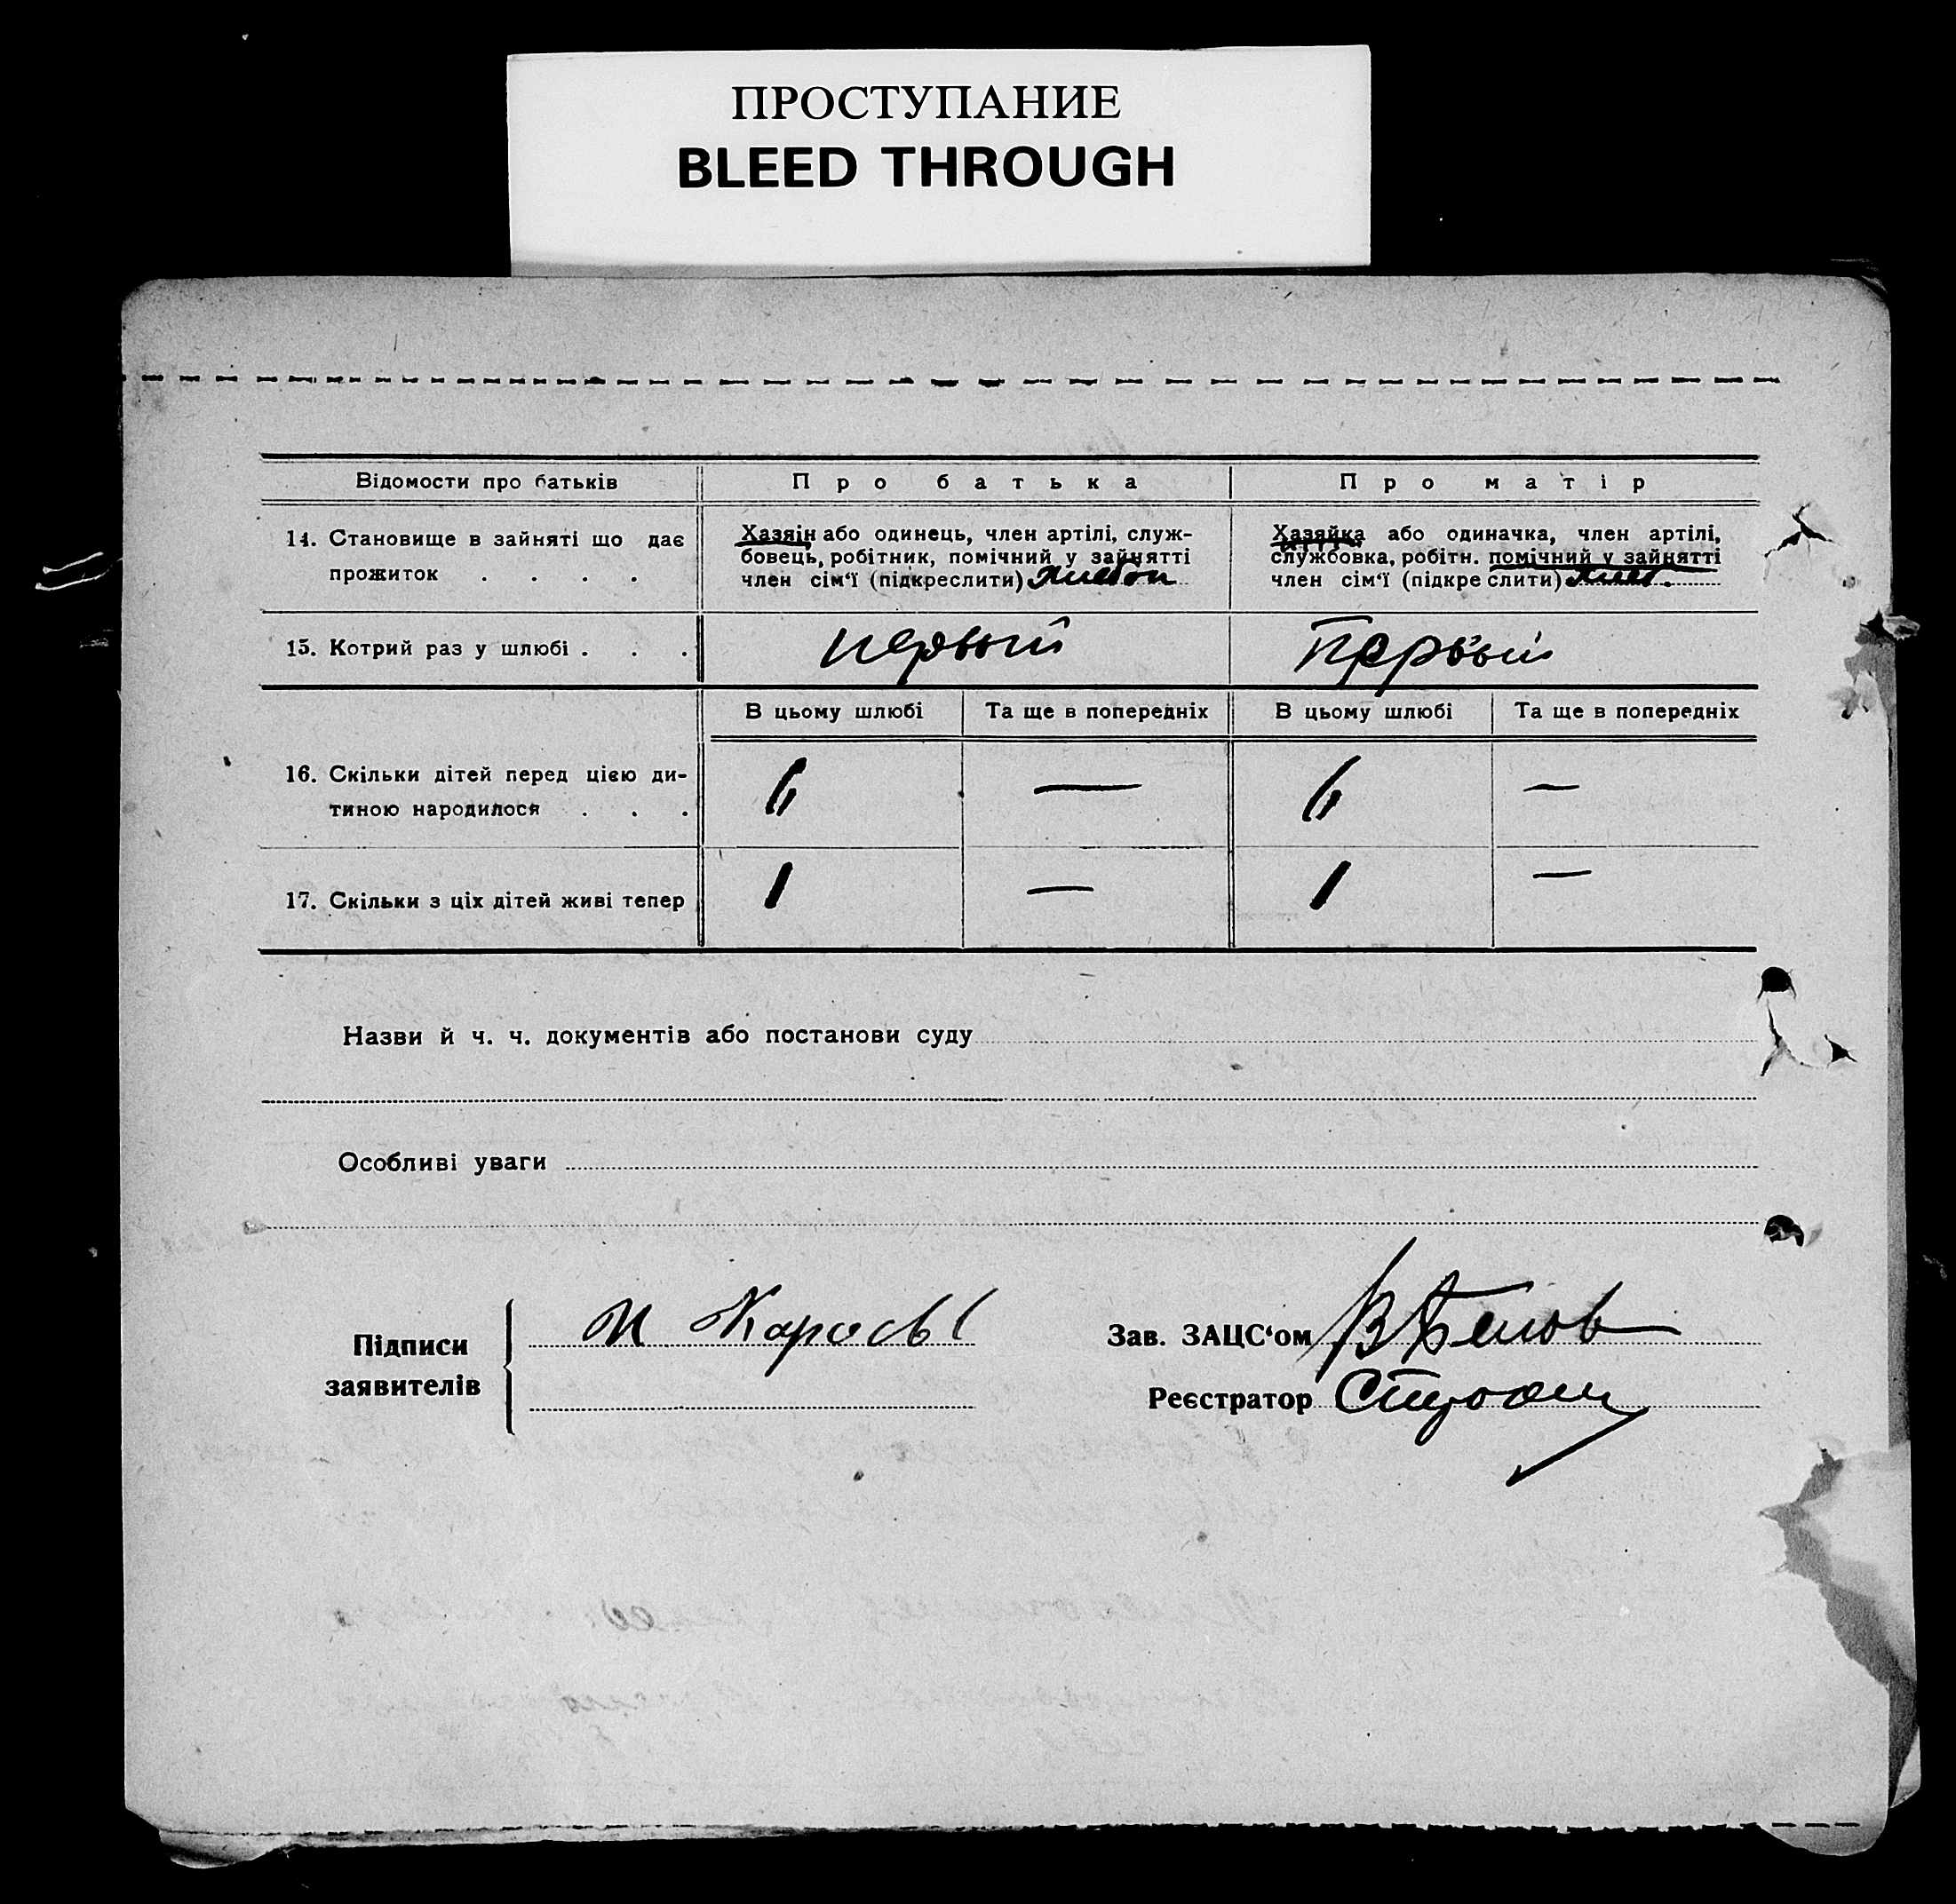 ПРОСТУПАНИЕ
BLEED THROUGH
Відомости про батьків
Про батька
Про матір
14. Становище в зайняті що дає
прожиток . . . .
Хазяін або одинець, член артілі, служ-
бовець, робітник, помічний у зайнятті
член сім'ї (підкреслити)
Хазяйка або одиначка, член артілі,
службовка, робітн. помічний у зайнятті
член сім'ї (підкре слити)
15. Котрий раз у шлюбі . . .
первый
Первый
В цьому шлюбі
Та ще в попередніх
В цьому шлюбі
Та ще в попередніх
16. Скільки дітей перед цією ди-
тиною народилося . . .
6
—
6
—
17. Скільки з ціх дітей живі тепер
1
—
1
—
Назви й ч. ч. документів або постанови суду
Особливі уваги
Підписи
заявителів
И
Зав. ЗАЦС'ом
Реєстратор